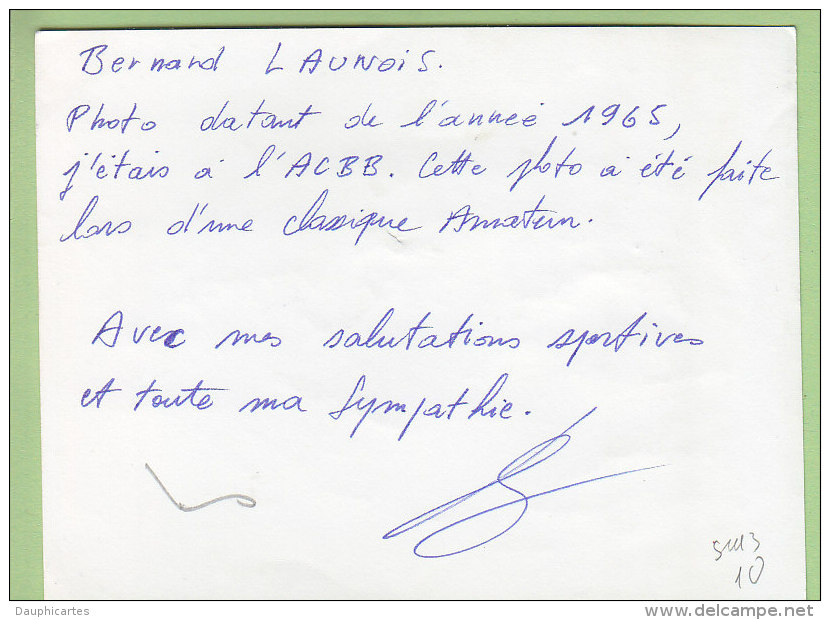 Bernard LAUNOIS.
Photo datant de l'année 1965,
j'étais à l'ACBB. Cette photo a été faite
lors d'une classique Amateur.
Avec mes salutations sportives
et toute ma sympathie.
10
Dauphicartes
www.delcampe.net